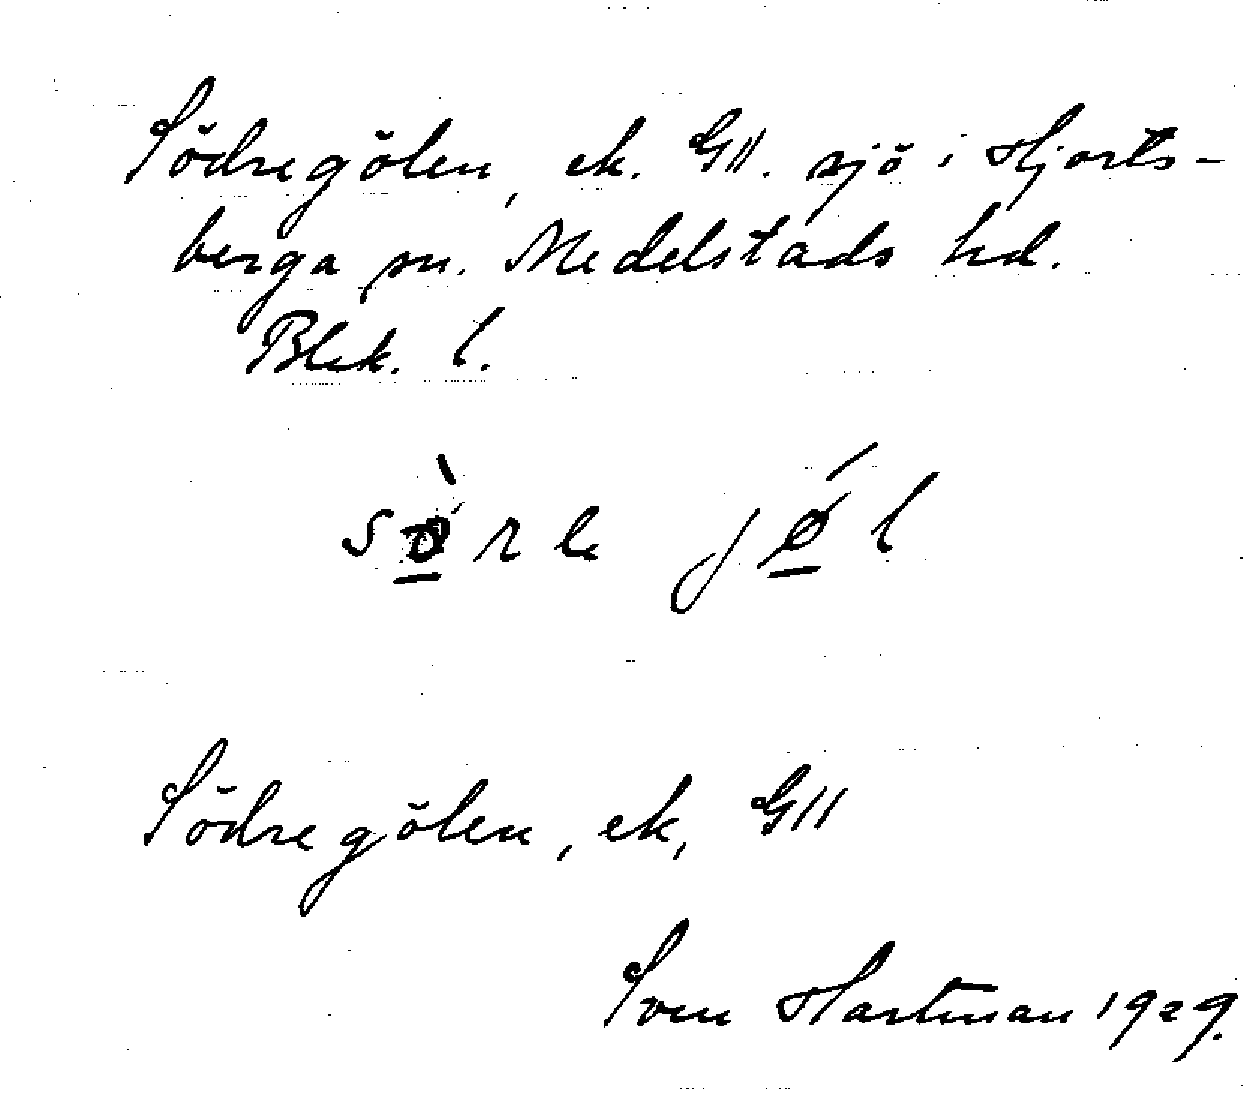 Södregölen, ek. G11. sjö i Hjorts-
berga sn. Medelstads hd.
Blek. l.
sø̲̀rle jǿ̲l
Södregölen, ek, G11
Sven Hartman 1929.